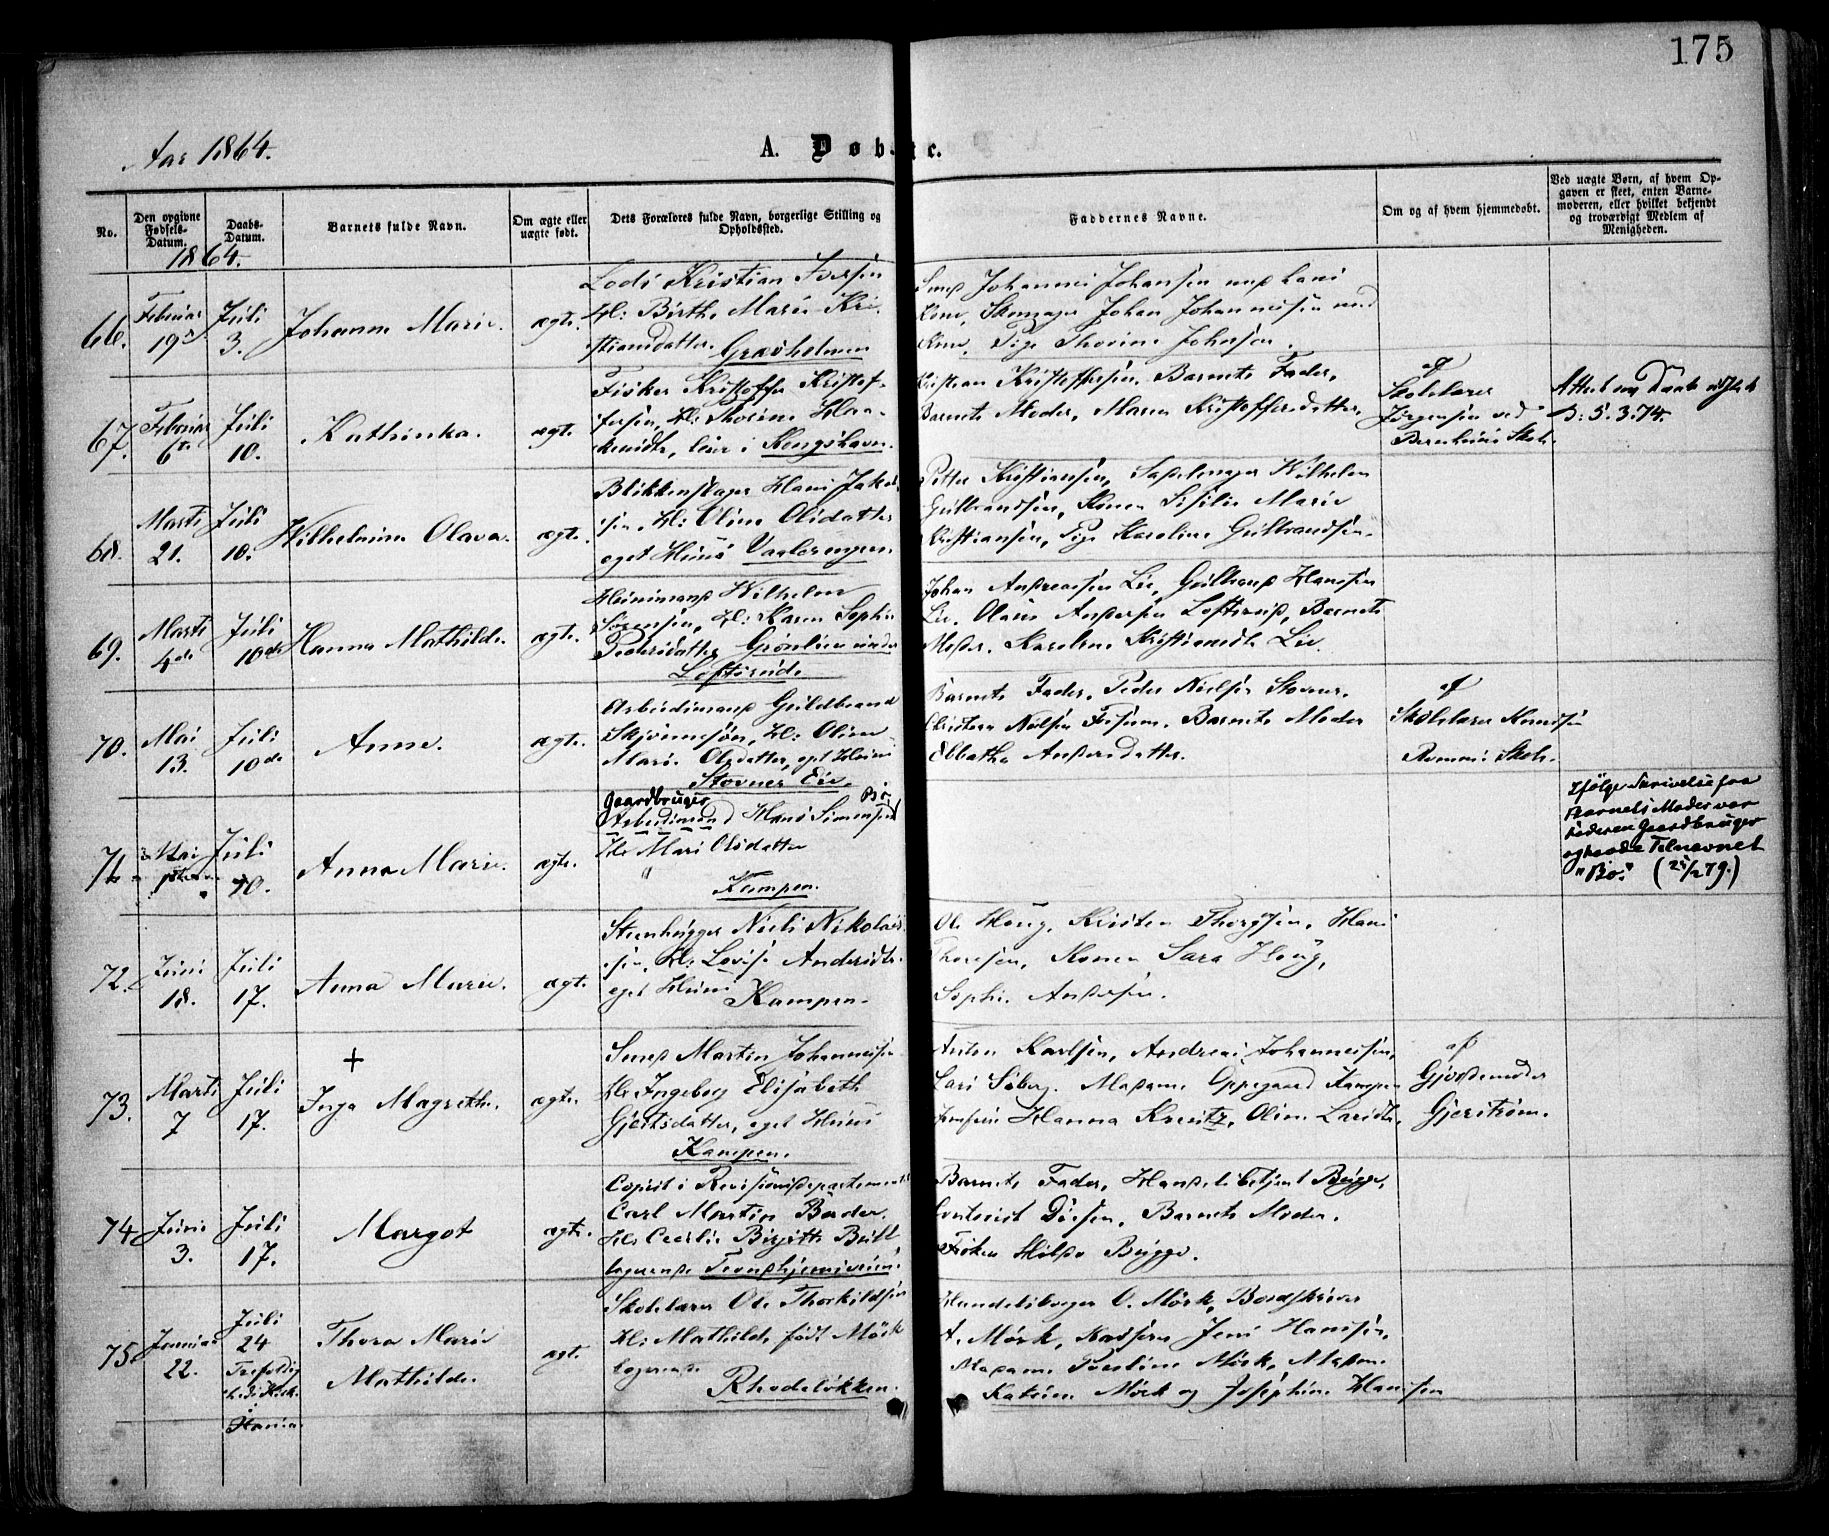 175
Aar 1864.
A. Døbte.
No.
Den opgivne
Fødsels-
Datum.
Daabs-
Datum.
Barnets fulde Navn.
Om ægte eller
uægte født.
Dets Forældres fulde Navn, borgerlige Stilling og
Opholdssted.
Faddernes Navne.
Om og af hvem hjemmedøbt.
Ved uægte Børn, af hvem Op-
gaven er skeet, enten Barne-
moderen, eller hvilket bekjendt
og troværdigt Medlem af
Menigheden.
1864.
66.
Februar
19
Juli
3.
Johanna Marie.
ægte.
Lods Kristian Iversen
H: Birthe Marie Kri-
stiansdatter. Græsholmen
Smed Johannes Johansen med hans
Kone, Skomager Johan Johannesen med
Kone, Pige Thorine Johnsen.
67.
Februar
6te
Juli
10.
Kathinka.
ægte.
Fisker Kristoffer Kristof-
fersen, H: Thorine Haa-
kensdtr, leier i Kongshavn
Kristian Kristoffersen, Barnets Fader,
Barnets Moder, Maren Kristoffersdatter,
af
Skolelærer
Jørgensen ved
Skole.
Attest om Daab udstedt
D: 5.3.74.
68.
Marts
21.
Juli
10.
Wilhelmine Olava.
ægte.
Blikkenslager Hans Jakob-
sen, H: Oline Olsdatter
eget Huus Vaalerengen
Petter Kristiansen, Sadelmager Wilhelm
Gulbrandsen, Konen Sisilie Marie
Kristiansen, Pige Karoline Gulbrandsen.
69.
Marts
4de
Juli
10de
Hanna Mathilde.
ægte.
Huusmand Wilhelm
Sørensen, H: Karen Sophie
Pedersdatter Grønlien under
Loftsrud.
Johan Andreassen Lie, Gulbrand Hansen
Lie, Olaus Andersen Loftsrud, Barnets
Moder, Karoline Kristiansdtr Lie.
70.
Mai
13.
Juli
10de
Anne.
ægte.
Arbeidsmand Guldbrand
H: Oline
Marie Olsdatter, eget Huus
Stovner Eie.
Barnets Fader, Peder Nielsen Stovner.
Christian Nielsen Barnets Moder
Andersdatter.
af
Skolelærer Knudsen
Skole.
71.
Mai
Juli
10.
Anna Marie.
ægte.
Gaardbruger
Arbeidsmand Hans Simensen
Bø,
H: Mari Olsdatter
"
Kampen.
Ifølge Skrivelse fra
Barnets Moder var
Faderen Gaardbruger
og havde Tilnavnet
"Bø." (25/2 79.)
72.
Juni
18.
Juli
17.
Anna Marie.
ægte.
Steenhugger Niels Nikolai-
sen, H: Lovise Andersdtr
eget Huus Kampen.
Ole Haug, Kristen Thorsen, Hans
Thoresen, Konen Sara Haug,
Sophie Andersen.
73.
Marts
7
Juli
17.
+
Inga Magrethe.
ægte.
Smed Martin Johannesen
H: Ingeborg Elisabeth
Gjertsdatter, eget Huus
Kampen.
Anton Karlsen, Andreas Johannesen,
Lars Søberg. Madame Oppegaard Kampen
Jomfru Hanna Krentz, Oline Larsdtr,
af
Gjordemoder
Gjerstrøm.
74.
Junie
3.
Juli
17.
Margot
ægte.
Copist i Revisionsdepartementet
Carl Martin Bøder.
H: Cecilie Birgitte Butt
logerende
Barnets Fader, Handelsbetjent Bugge,
Contorist Døesen, Barnets Moder.
Frøken Hilda Bugge.
75.
Januar
22.
Juli
24
Trefoldig-
heds Kirke
i
Thora Marie
Mathilde.
ægt.
Skolelærer Ole Thorkildsen
H: Mathilde født Mørk
logerende
Rhodeløkken.
Handelsborger O. Mørk, Bordskriver
A. Mørk, Kasserer Jens Hansen,
Madame Pouline Mørk, Madame
Katrine Mørk og Josephine Hansen